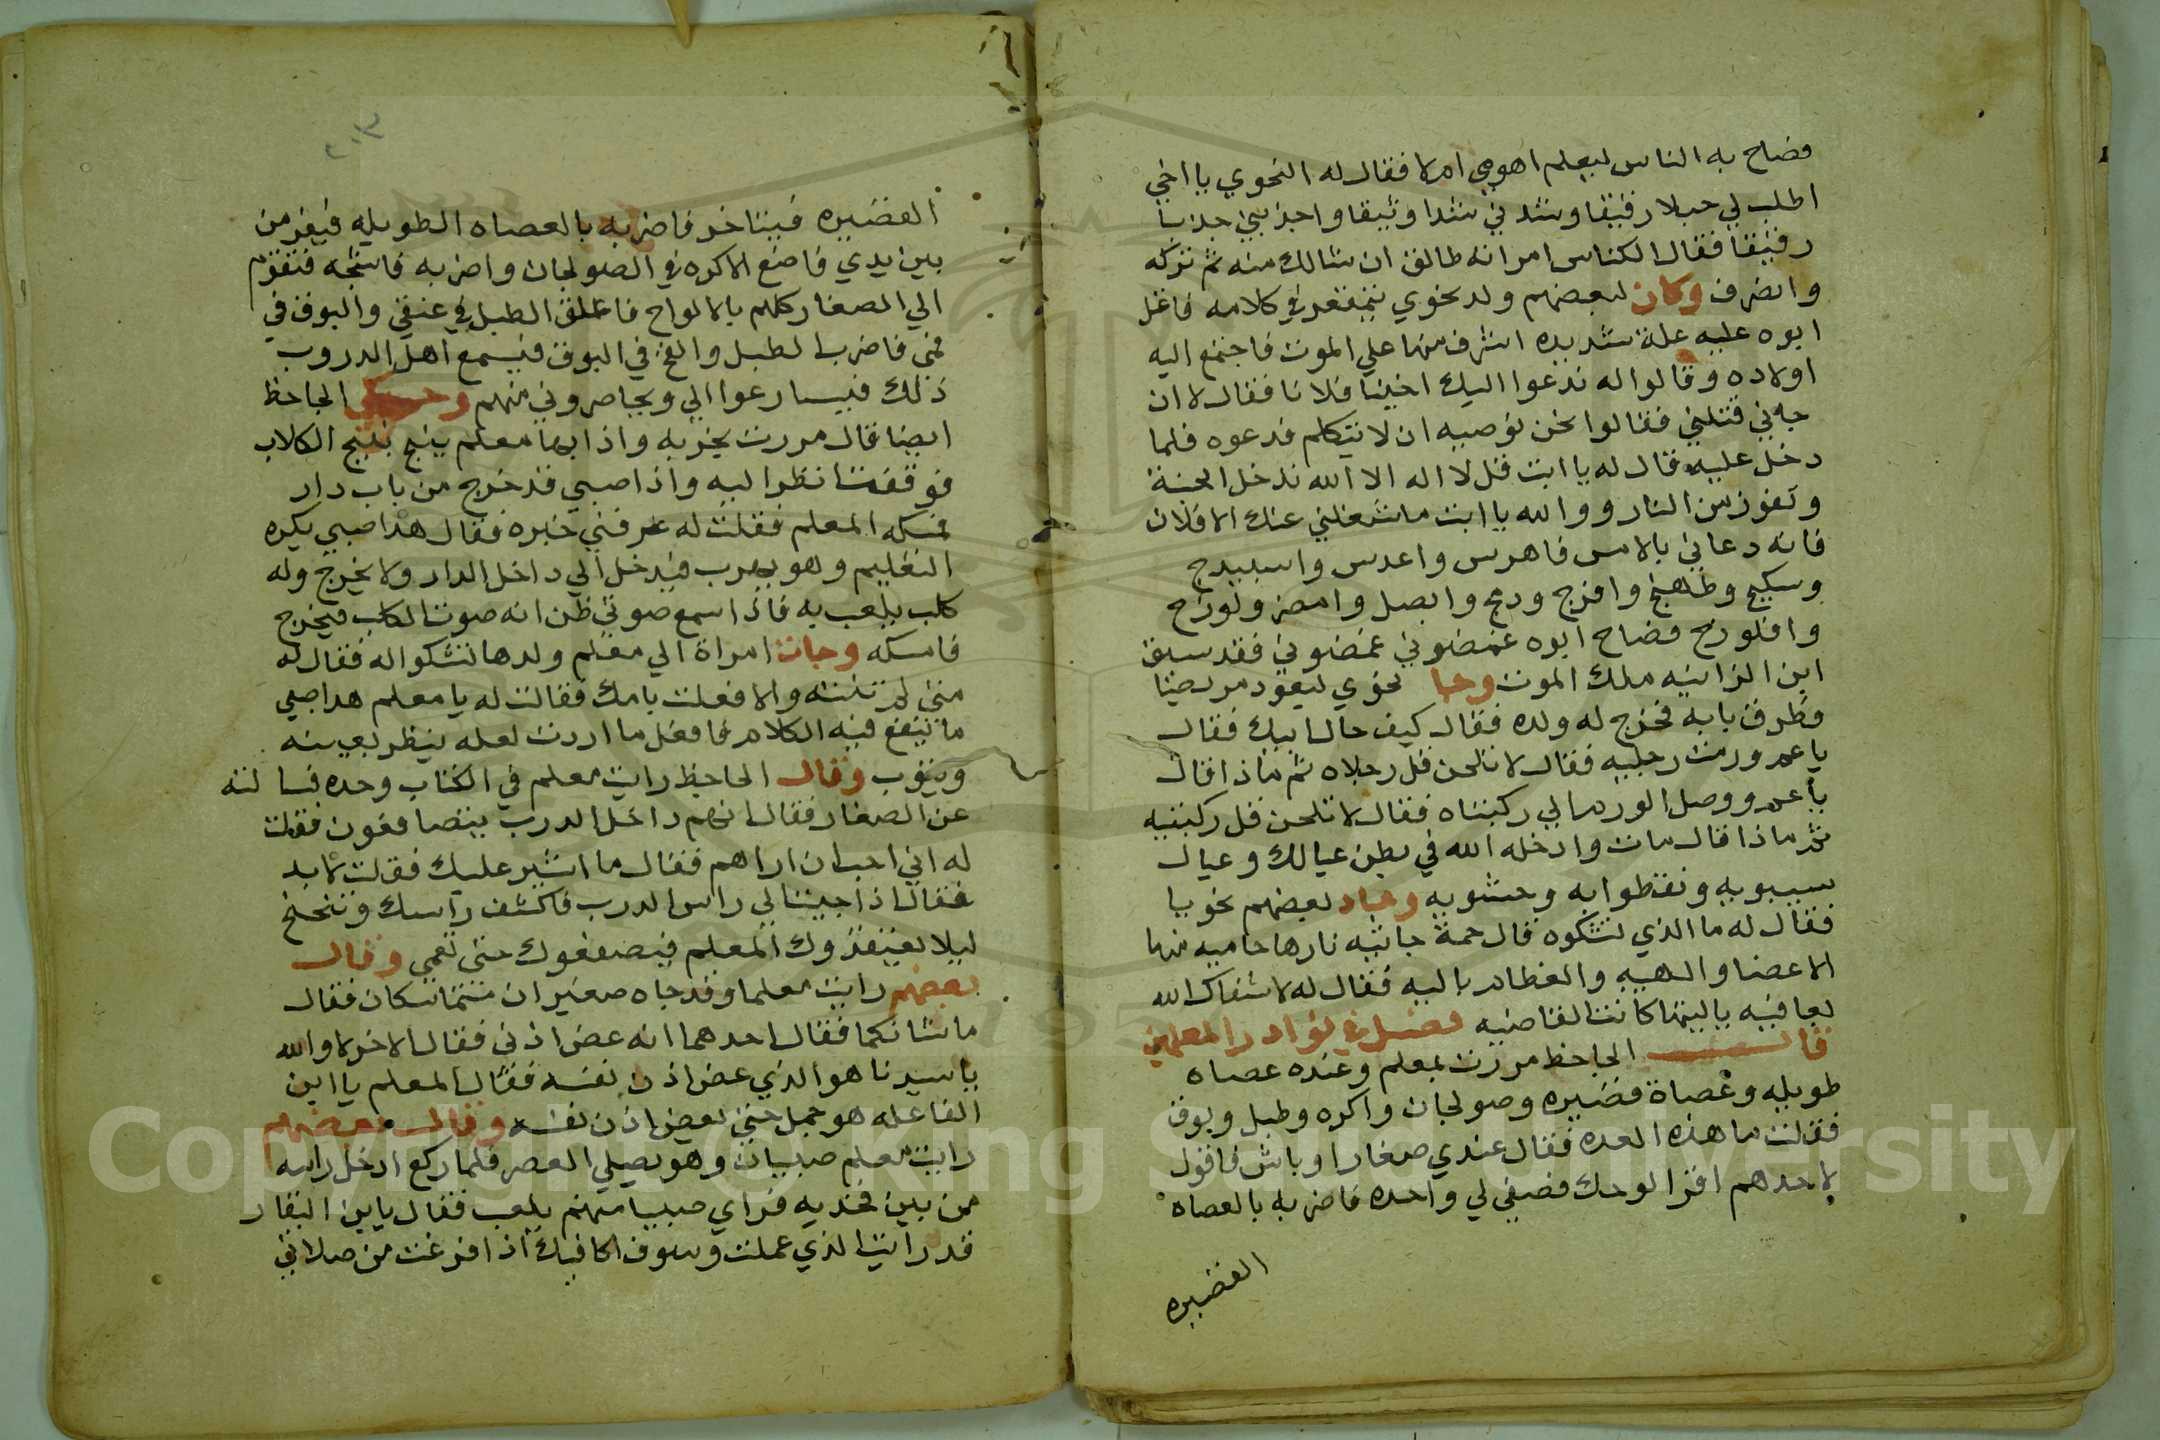 فصاح به الناس ليعلم اهو حي ام لا فقال له النحوي يا اخي
اطلب لي حبلا رقيقا وشدني شدا وثيقا واجذبني جذبا
رفيقا فقال الكناس امراته طالق ان شالك منه ثم تركه
وانصرف وكان لبعضهم ولد نحوي يتقعر في كلامه فاعل
ابوه عليه علة شديده اشرف منها علي الموت فاجتمع اليه
اولاده وقالوا له ندعوا اليك اخينا فلانا فقال لا ان
جاني قتلني فقالوا نحن نوصيه ان لا يتكلم فدعوه فلما
دخل عليه قال له يا ابت قل لا اله الا الله تدخل الجنة
وتفوز من النار ووالله يا ابت ما شغلني عنك الا فلان
فانه دعاني بالامس فاهرس واعدس واسبيدج
وسكبج وطهبج وافرج ودجج وابصل وامضر ولوزج
وافلوزج فصاح ابوه غمضوني غمضوني فقد سبق
ابن الزانيه ملك الموت وجا نحوي ليعود مريضا
فطرق بابه فخرج له ولده فقال كيف حال ابيك فقال
يا عم ورمت رجليه فقال لا تلحن قل رجلاه ثم ماذا قال
يا عم ووصل الورم الي ركبتاه فقال لا تلحن قل ركبتيه
ثم ماذا قال مات وادخله الله في بطن عيالك وعيال
سيبويه ونفطوايه وحشويه وعاد بعضهم نحويا
فقال له ما الذي تشكوه قال حمة جاثيه نارها حاميه منها
الاعضا واهيه والعظام باليه فقال له لا شفاك الله
بعافيه ياليتها كانت القاضيه فصل في نوادر المعلمين
قال الجاحظ مررت بمعلم وعنده عصاه
طويله وعصاة قصيره وصولجان واكره وطبل وبوق
فقلت ما هذه العده فقال عندي صغارا وباش فاقول
لاحدهم اقرا لوحك فيصفر لي واحده فاضربه بالعصاه
القصيره
٢٠٣
القصيره فيتاخر فاضربه بالعصاه الطويله فيفر من
بين يدي فاضع الاكره في الصولجان واضربه فاشجه فتقوم
الي الصغار كلهم بالالواح فاعلق الطبل في عنقي والبوق في
فمي فاضرب الطبل وانفخ في البوق فيسمع اهل الدروب
ذلك فيسارعوا الي ويخاصروني منهم وحكي الجاحظ
ايضا قال مررت بخربه واذا بها معلم ينبح نبيح الكلاب
فوقفت انظر اليه واذا صبي قد خرج من باب دار
فمسكه المعلم فقلت له عرفني خبره فقال هذا صبي يكره
التعليم وهو يهرب فيدخل الي داخل الدار ولا يخرج وله
كلب يلعب به فاذا سمع صوتي ظن انه صوت الكلب فيخرج
فامسكه وجات امراة الي معلم ولدها تشكوا له فقال له
متي لم تنته والا فعلت بامك فقالت له يا معلم هذا صبي
ما ينفع فيه الكلام فافعل ما اردت لعله ينظر بعينه
ويتوب وقال الجاحظ رايت معلم في الكتاب وحده فسالته
عن الصغار فقال انهم داخل الدرب يتصافعون فقلت
له اني احب ان اراهم فقال ما اشير عليك فقلت لا بد
فقال اذا جيت الي راس الدرب فاكشف راسك وتنحنح
ليلا يعتقدوك المعلم فيصفعوك حتي تعمي وقال
بعضهم رايت معلما وقد جاه صغيران متماسكان فقال
ما شانكما فقال احدهما انه عض اذني فقال الاخر لا والله
يا سيدنا هو الذي عض اذن نفسه فقال المعلم يا ابن
الفاعله هو جمل حتي يعض اذن نفسه وقال بعضهم
رايت معلم صبيان وهو يصلي العصر فلما ركع ادخل راسه
من بين فخذيه فراي صبيا منهم يلعب فقال يا ابن البقار
قد رايت الذي عملت وسوف اكافيك اذا فرغت من صلاتي
Copyright © King Saud University